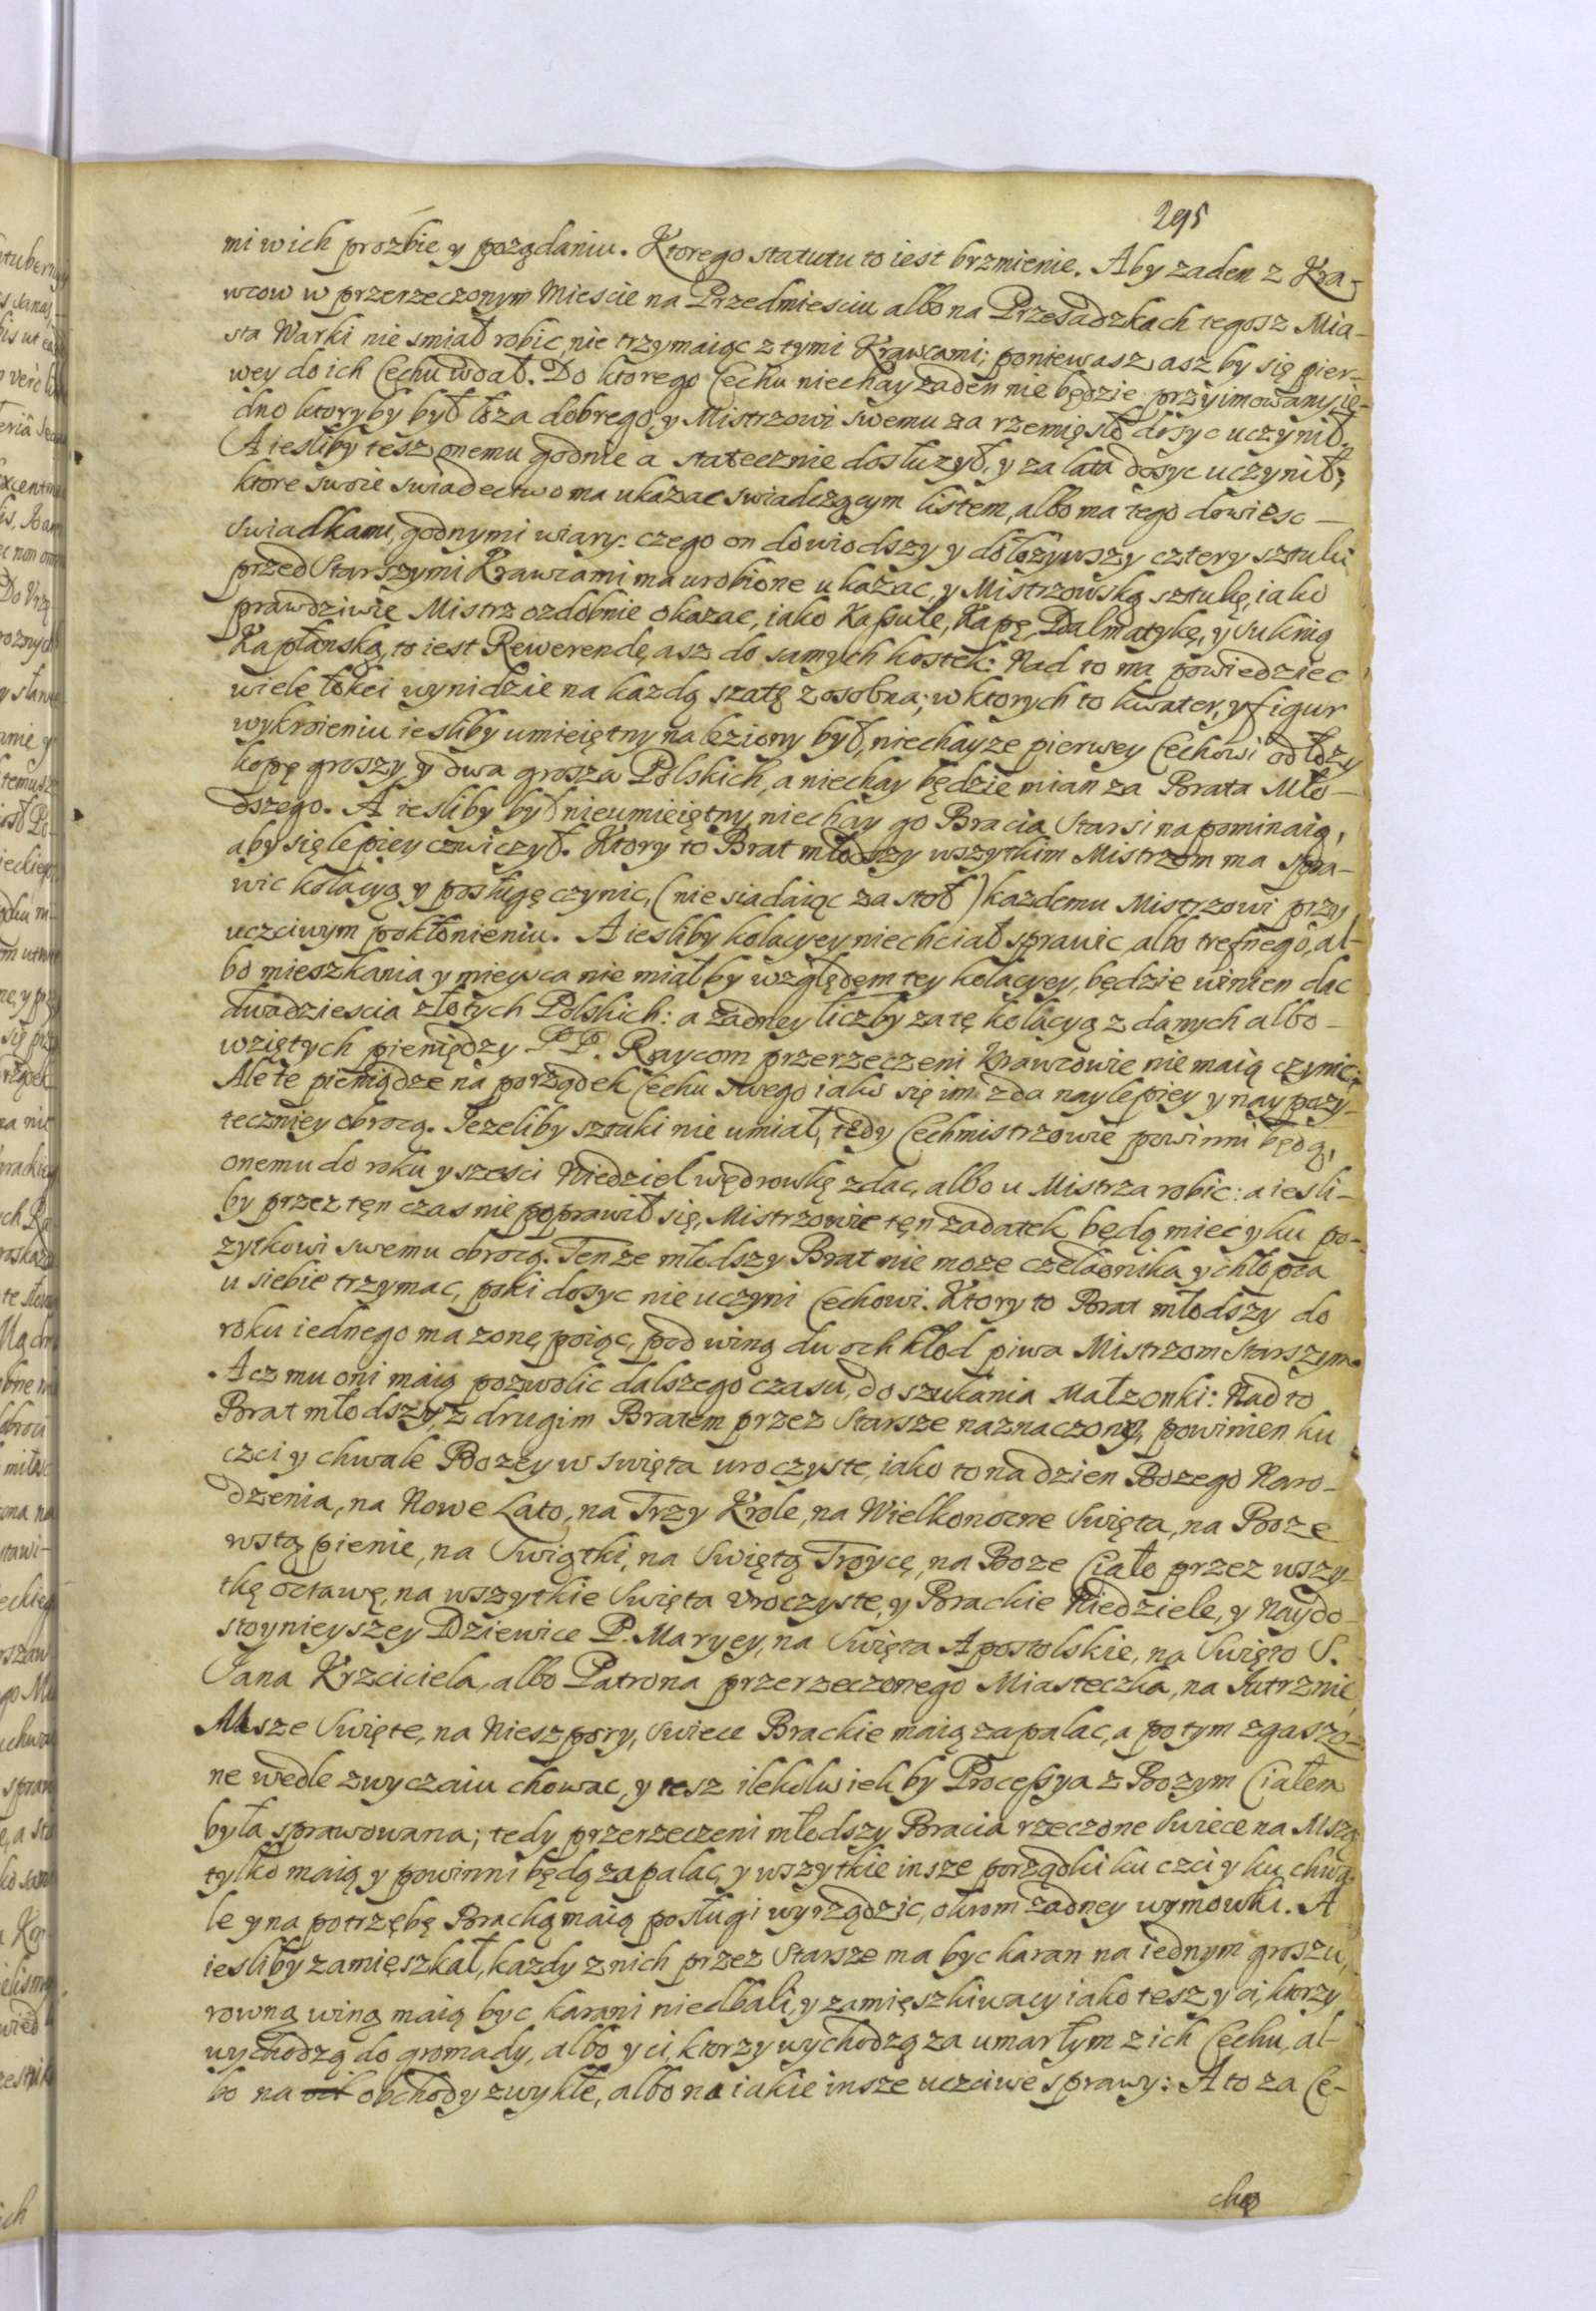 295
mi w ich prozbie y poządaniu. Ktorego statutu to iest brzmienie. Aby zaden z Kra-
wcow w przerzeczonym Miescie na Przedmiesciu albo na Przesadzkach tegosz Mia-
sta Warki nie smiał robic, nie trzymaiąc z tymi Krawcami; poniewasz asz by się pier-
wey do ich Cechu wdał. Do ktorego Cechu niechay zaden nie będzie przyimowany ie-
dno ktoryby był łoza dobrego, y Mistrzowi swemu za rzemięsło dosyc uczynił.
A iesliby tesz onemu godnie a statecznie dosłuzył, y za lata dosyc uczynił;
ktore swoie swiadectwo ma ukazac swiadczącym listem, albo ma tego dowiesc —
Swiadkami, godnymi wiary. czego on dowiodszy y dołozywszy cztery sztuki
przed Starszymi Krawcami ma urobione ukazac, y Mistrzowską sztukę, iako
prawdziwie Mistrz ozdobnie okazac, iako Kapsule, Kapę, Dalmatykę, y Suknią
Kapłanską, to iest Rewerendę, asz do samych kostek: Nad to ma powiedziec
wiele łokci wynidzie na kazdą szatę z osobna; w ktorych to kwater, y figur
wykroieniu iesliby umieiętny naleziony był, niechayze pierwey Cechowi odłozy
kopę groszy y dwa grosza Polskich, a niechay będzie mian za Brata Mło-
dszego. A iesliby był nieumieiętny, niechay go Bracia Starsi napominaią,
aby się lepiey czwiczył. Ktory to Brat młodszy wszytkim Mistrzom ma spra-
wic kolacyą y posługę czynic, (nie siadaiąc za stoł) kazdemu Mistrzowi przy
uczciwym pokłonieniu. A iesliby kolacyey niechciał sprawic, albo trefnego, al-
bo mieszkania y mieysca nie miałby względem tey kolacyey, będzie winien dac
dwadziescia złotych Polskich: a zadney liczby za tę kolacyą z danych albo-
wziętych pieniędzy P P. Raycom przerzeczeni Krawcowie nie maią czynic;
Ale te pieniądze na porządek Cechu swego iako się im zda naylepiey y naypozy-
teczniey obrocą. Iezeliby sztuki nie umiał, tedy Cechmistrzowie powinni będą,
onemu do roku y szesci Niedziel wędrowkę zdac, albo u Mistrza robic: a iesli-
by przez tęn czas nie poprawił się, Mistrzowie tęn zadatek będą miec y ku po-
zytkowi swemu obrocą. Tenze młodszy Brat nie moze czeladnika y chłopca
u siebie trzymac, poki dosyc nie uczyni Cechowi. Ktory to Brat młodszy do
roku iednego ma zonę poiąc, pod winą dwoch kłod piwa Mistrzom Starszym.
Acz mu oni maią pozwolic dalszego czasu, do szukania Małzonki: Nad to
Brat młodszy z drugim Bratem przez Starsze naznaczony, powinien ku
czci y chwale Bozey w swięta uroczyste, iako to na dzien Bozego Naro-
dzenia, na Nowe Lato, na Trzy Krole, na Wielkonocne Swięta, na Boze
wstąpienie, na Swiątki, na Swiętą Troycę, na Boze Ciało przez wszy-
tkę octawę, na wszytkie Swięta Vroczyste, y Brackie Niedziele, y Naydo-
stoynieyszey Dziewice P. Maryey, na Swięta Apostolskie, na Swięto S.
Iana Krzciciela, albo Patrona przerzeczonego Miasteczka, na Iutrznie,
Msze Swięte, na Nieszpory, Swiece Brackie maią zapalac, a potym zgaszo-
ne wedle zwyczaiu chowac, y tesz ilekolwiek by Processya z Bozym Ciałem
była sprawowana; tedy przerzeczeni młodszy Bracia rzeczone Swiece na Mszą
tylko maią y powinni będą zapalac, y wszytkie insze porządki ku czci y ku chwa-
le y na potrzębę Bracką maią posługi wyrządzic, okrom zadney wymowki. A
iesliby zamięszkał, kazdy z nich przez Starsze ma byc karan na iednym groszu,
rowną winą maią byc karani niedbali, y zamięszkiwacy iako tesz y ci, ktorzy
wychodzą do gromady, albo y ci, ktorzy wychodzą za umarłym z ich Cechu, al-
bo na obchody zwykłe, albo na iakie insze uczciwe sprawy: A to za Ce-
chę